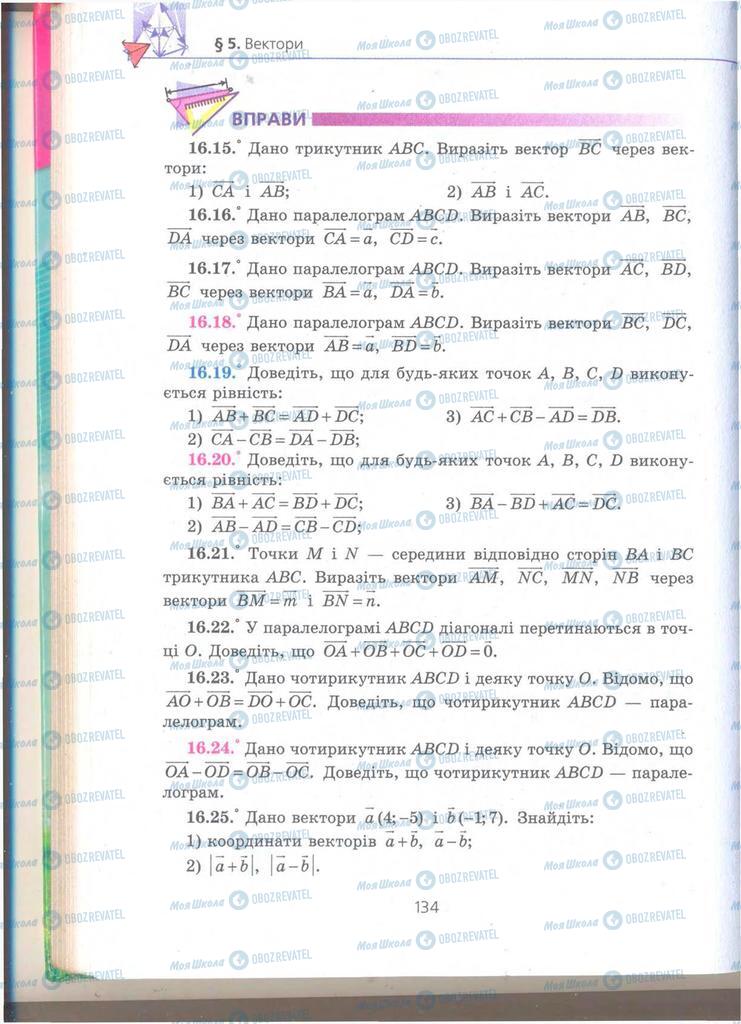 § 5. Вектори
ВПРАВИ
16.15.° Дано трикутник ABC. Виразіть вектор BC через век-
тори:
1) CA і AB; 2) AB і AC.
16.16.° Дано паралелограм ABCD. Виразіть вектори AB, BC,
DA через вектори CA = a, CD = c.
16.17.° Дано паралелограм ABCD. Виразіть вектори AC, BD,
BC через вектори BA = a, DA = b.
16.18.° Дано паралелограм ABCD. Виразіть вектори BC, DC,
DA через вектори AB = a, BD = b.
16.19.° Доведіть, що для будь-яких точок A, B, C, D викону-
ється рівність:
1) AB + BC = AD + DC; 3) AC + CB − AD = DB.
2) CA − CB = DA − DB;
16.20.° Доведіть, що для будь-яких точок A, B, C, D викону-
ється рівність:
1) BA + AC = BD + DC; 3) BA − BD + AC = DC.
2) AB − AD = CB − CD;
16.21.° Точки M і N — середини відповідно сторін BA і BC
трикутника ABC. Виразіть вектори AM, NC, MN, NB через
вектори BM = m і BN = n.
16.22.° У паралелограмі ABCD діагоналі перетинаються в точ-
ці O. Доведіть, що OA + OB + OC + OD = 0.
16.23.° Дано чотирикутник ABCD і деяку точку O. Відомо, що
AO + OB = DO + OC. Доведіть, що чотирикутник ABCD — пара-
лелограм.
16.24.° Дано чотирикутник ABCD і деяку точку O. Відомо, що
OA − OD = OB − OC. Доведіть, що чотирикутник ABCD — парале-
лограм.
16.25.° Дано вектори a (4; −5) і b (−1; 7). Знайдіть:
1) координати векторів a + b, a − b;
2) |a + b|, |a − b|.
134